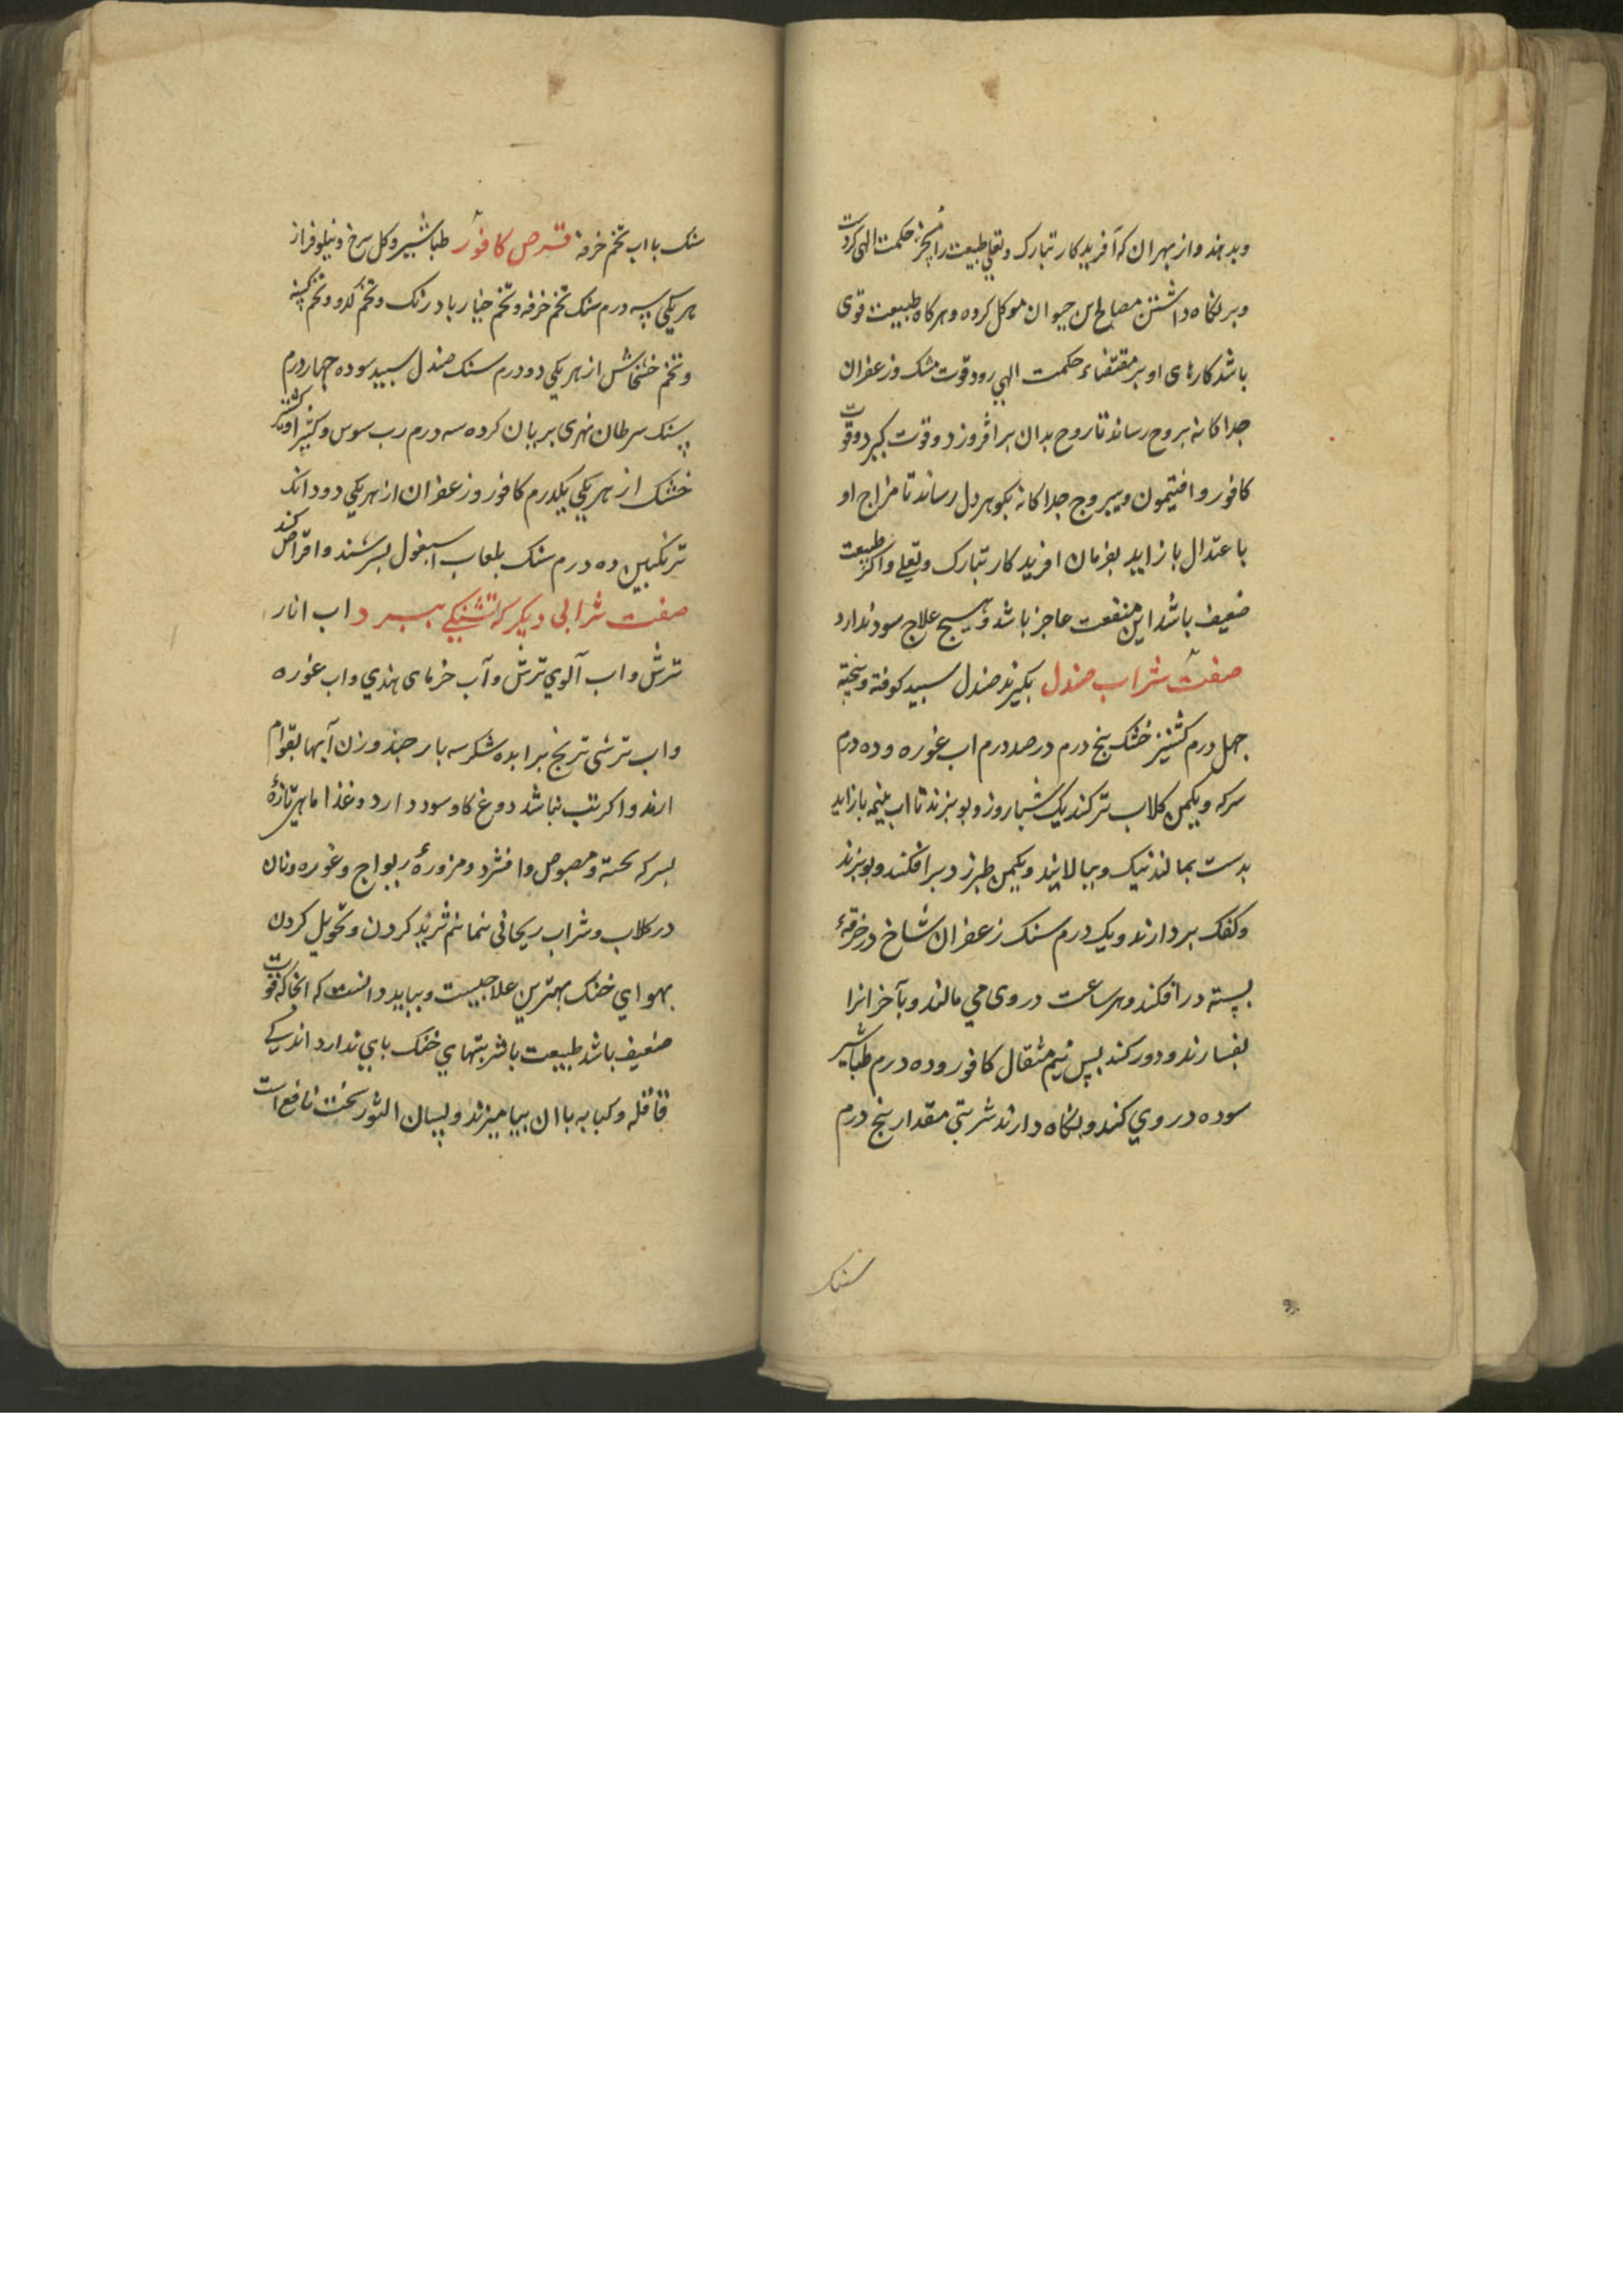 وبدهند واز بهر ان که آفریدکار تبارک وتعلی طبیعت را حکمت الهی کردست
وبر نکاه داشتن مصالح این حیوان موکل کرده وهرکاه طبیعت قوی
باشد کارهای او بر مقتضاء حکمت الهی رود قوت مشک وزعفران
جداکانه بروح رساند تا روح بدان برافروزد وقوت کیرد وقوت
کافور وافتیمون ویبروج جداکانه بکوهر دل رساند تا مزاج او
باعتدال بازاید بفرمان افریدکار تبارک وتعلی واکر طبیعت
ضعیف باشد ازین منفعت عاجز باشد وهیچ علاج سود ندارد
صفت شراب صندل بکیرند صندل سپید کوفته وبیخته
جهل درم کشنیز خشک پنج درم در صد درم اب غوره وده درم
سرکه ویکمن کلاب تر کنند یک شباروز وبپزند تا اب بنیمه بازاید
بدست بمالند نیک وبپالایند ویکمن طبرزد برافکنند وبپزند
وکفک بردارند ویک درم سنک زعفران شاخ در خرقهٔ
بسته درافکنند وهر ساعت در وی می مالند وبآخر انرا
بفسارند ودور کنند پس نیم مثقال کافور وده درم طباشیر
سوده در وی کنند وبنکاه دارند شربتی مقدار پنج درم
سنک
سنک با اب تخم خرفه قرص کافور طباشیر وکل سرخ ونیلوفر از
هر یکی سه درم سنک تخم خرفه وتخم خیار بادرنک وتخم کدو وتخم کسنه
وتخم خشخاش از هر یکی دو درم سنک صندل سپید سوده جهار درم
سنک سرطان نهری بریان کرده سه درم رب سوس وکتیرا وکشنیز
خشک از هر یکی یکدرم کافور وزعفران از هر یکی دو دانک
ترنکبین ده درم سنک بلعاب اسبغول بسرشند واقراص کند
صفت شرابی دیکر که تشنکی ببرد اب انار
ترش واب آلوی ترش وآب خرمای هندی واب غوره
واب ترشی ترنج برابر شکر سه بار چند وزن آبها بقوام
ارند واکر تب نباشد دوغ کاو سود دارد وغذا ماهی تازهٔ
بسرکه پخته ومصوص وافشرد ومزورهٔ ریواج وغوره ونان
در کلاب وشراب ریحانی ثرید کردن وتحویل کردن
بهوای خنک بهترین علاجیست وبباید دانست که انجا که قوت
ضعیف باشد طبیعت با شربتهای خنک پای ندارد اندکی
قاقله وکبابه با ان بیامیزند ولسان الثور سخت نافع است